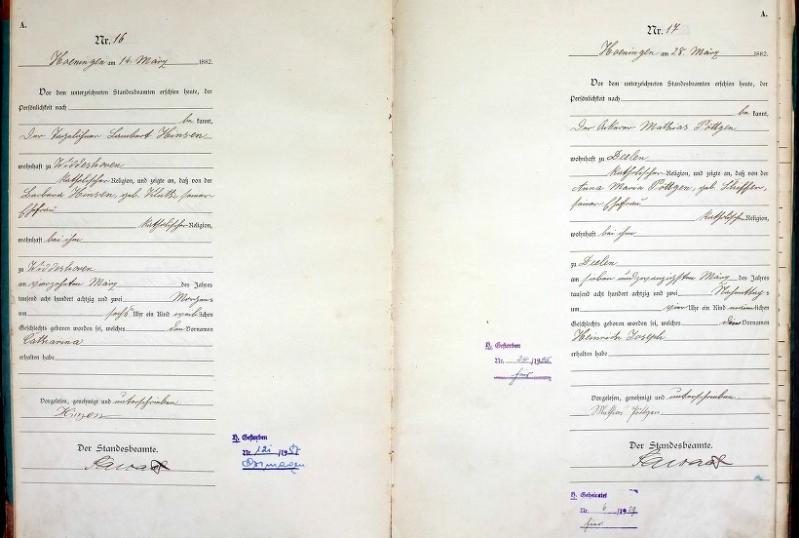 A.
Nr. 16
Hoeningen am 14. März 1882.
Vor dem unterzeichneten Standesbeamten erschien heute, der
Persönlichkeit nach
be kannt,
Der Lambert Hinsen
wohnhaft zu Widdeshoven
katholischer Religion, und zeigte an, daß von der
Barbara Hinsen, geb. seiner
Ehefrau
katholischer Religion,
wohnhaft bei ihm
zu Widdeshoven
am vierzehnten März des Jahres
tausend acht hundert achtzig und zwei Morgens
um sechs Uhr ein Kind weiblichen
Geschlechts geboren worden sei, welches den Vornamen
Catharina
erhalten habe
Vorgelesen, genehmigt und unterschrieben
Hinsen
Der Standesbeamte.
H. Gestorben
Nr.
Dormagen
A.
Nr. 17
Hoeningen am 28. März 1882.
Vor dem unterzeichneten Standesbeamten erschien heute, der
Persönlichkeit nach
be kannt,
Der Ackerer Mathias Pöttgen
wohnhaft zu Deelen
katholischer Religion, und zeigte an, daß von der
Anna Maria Pöttgen, geb. Steffen,
seiner Ehefrau
katholischer Religion,
wohnhaft bei ihm
zu Deelen
am sieben und zwanzigsten März des Jahres
tausend acht hundert achtzig und zwei Nachmittags
um Uhr ein Kind männlichen
Geschlechts geboren worden sei, welches Vornamen
Heinrich Joseph
erhalten habe
Vorgelesen, genehmigt und unterschrieben
Mathias Pöttgen.
Der Standesbeamte.
H. Gestorben
Nr.
hier
H. Geheiratet
Nr. 6
hier